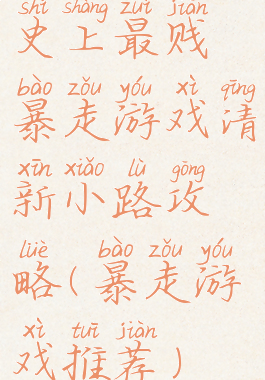 shǐ shàng zuì jiàn
史上最贱
bào zǒu yóu xì qīng
暴走游戏清
xīn xiǎo lù gōng
新小路攻
lüè bào zǒu yóu
略(暴走游
xì tuī jiàn
戏推荐)